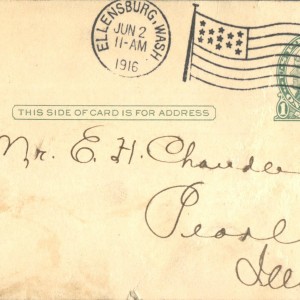 ELLENSBURG, WASH.
JUN 2
11-AM
1916
THIS SIDE OF CARD IS FOR ADDRESS
1
Mr. E. H. Chandle
Pearl
Ill